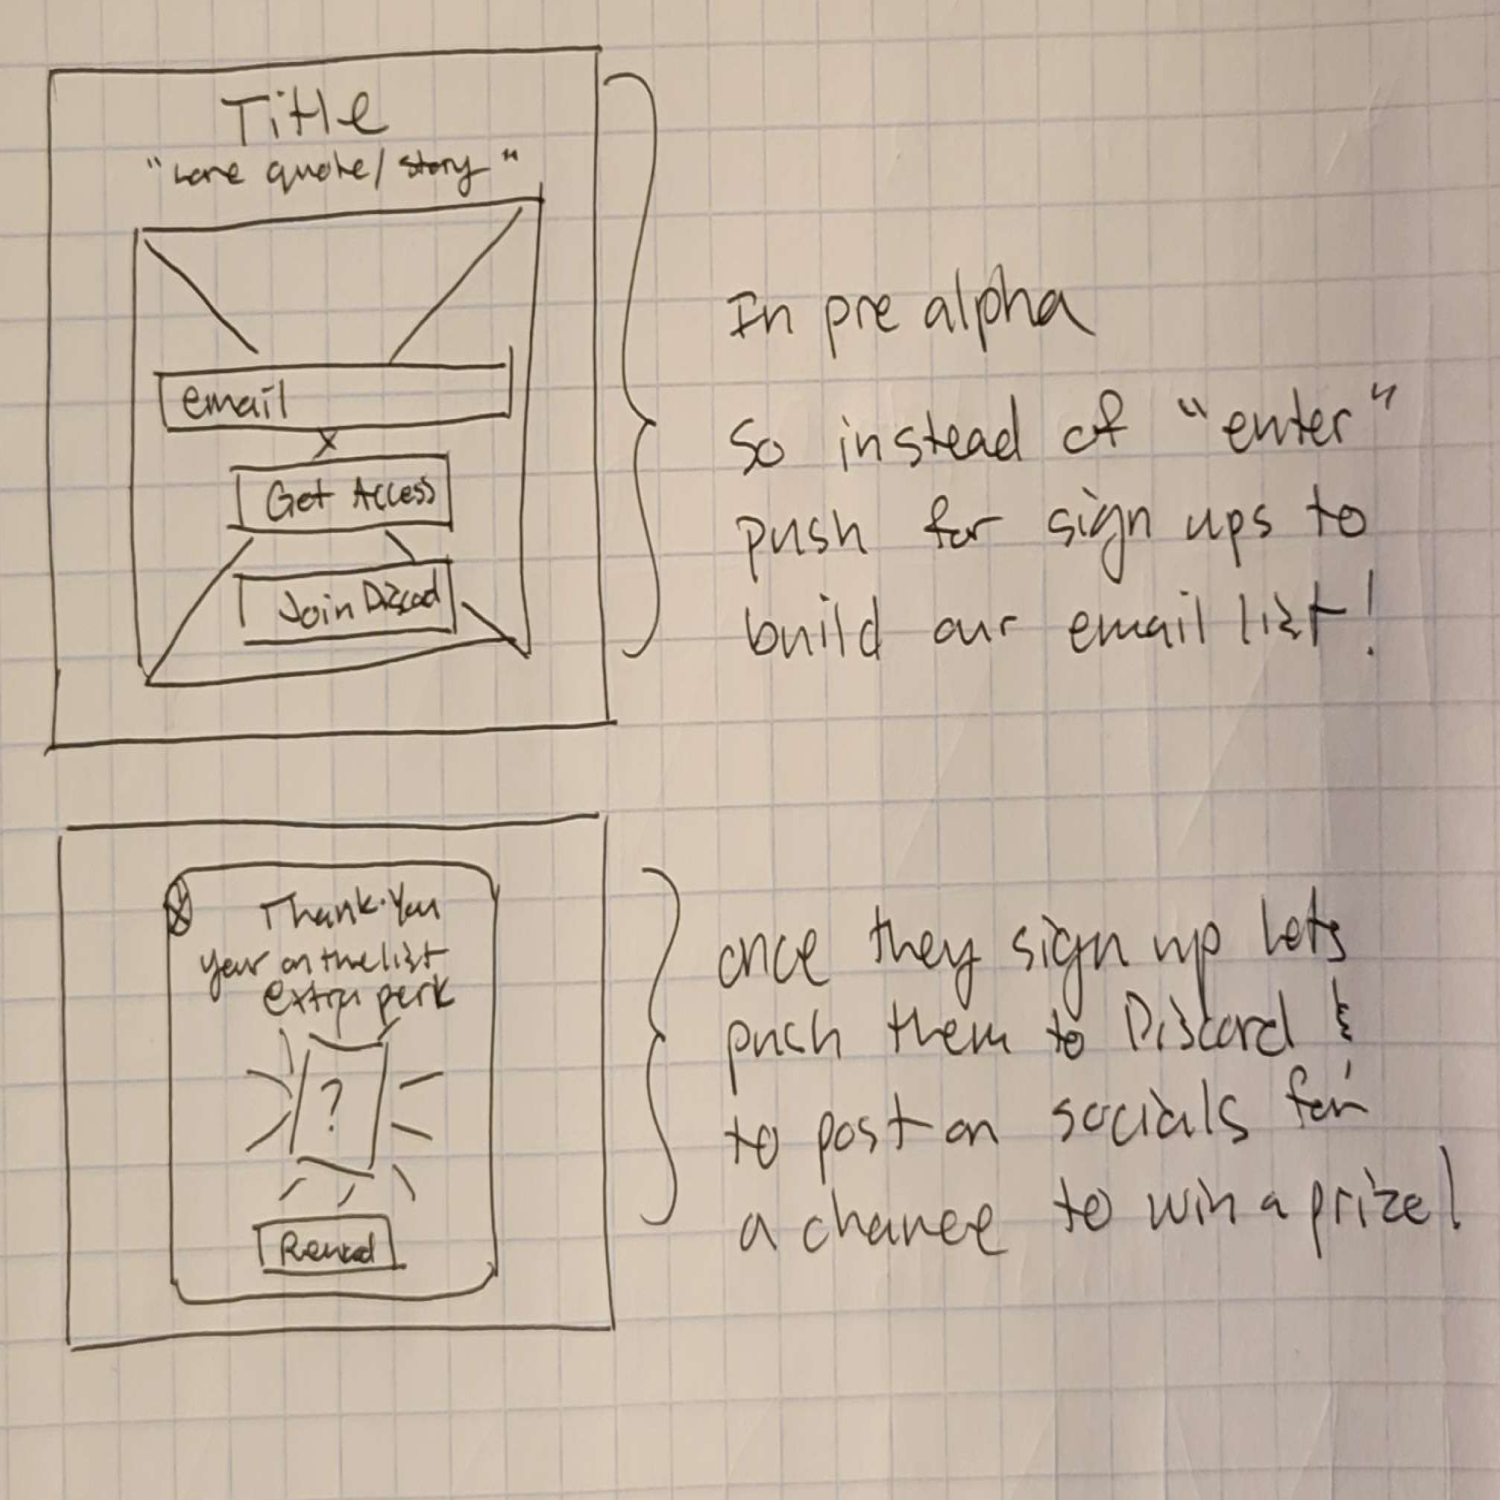 Title
"Lore quote/story"
email
x
Get Access
Join Discod
In pre alpha
so instead of "enter"
push for sign ups to
build our email list!
X
Thank-You
your on the list
extra perk
?
once they sign up lets
push them to Discord &
to post on socials for
a chance to win a prize!